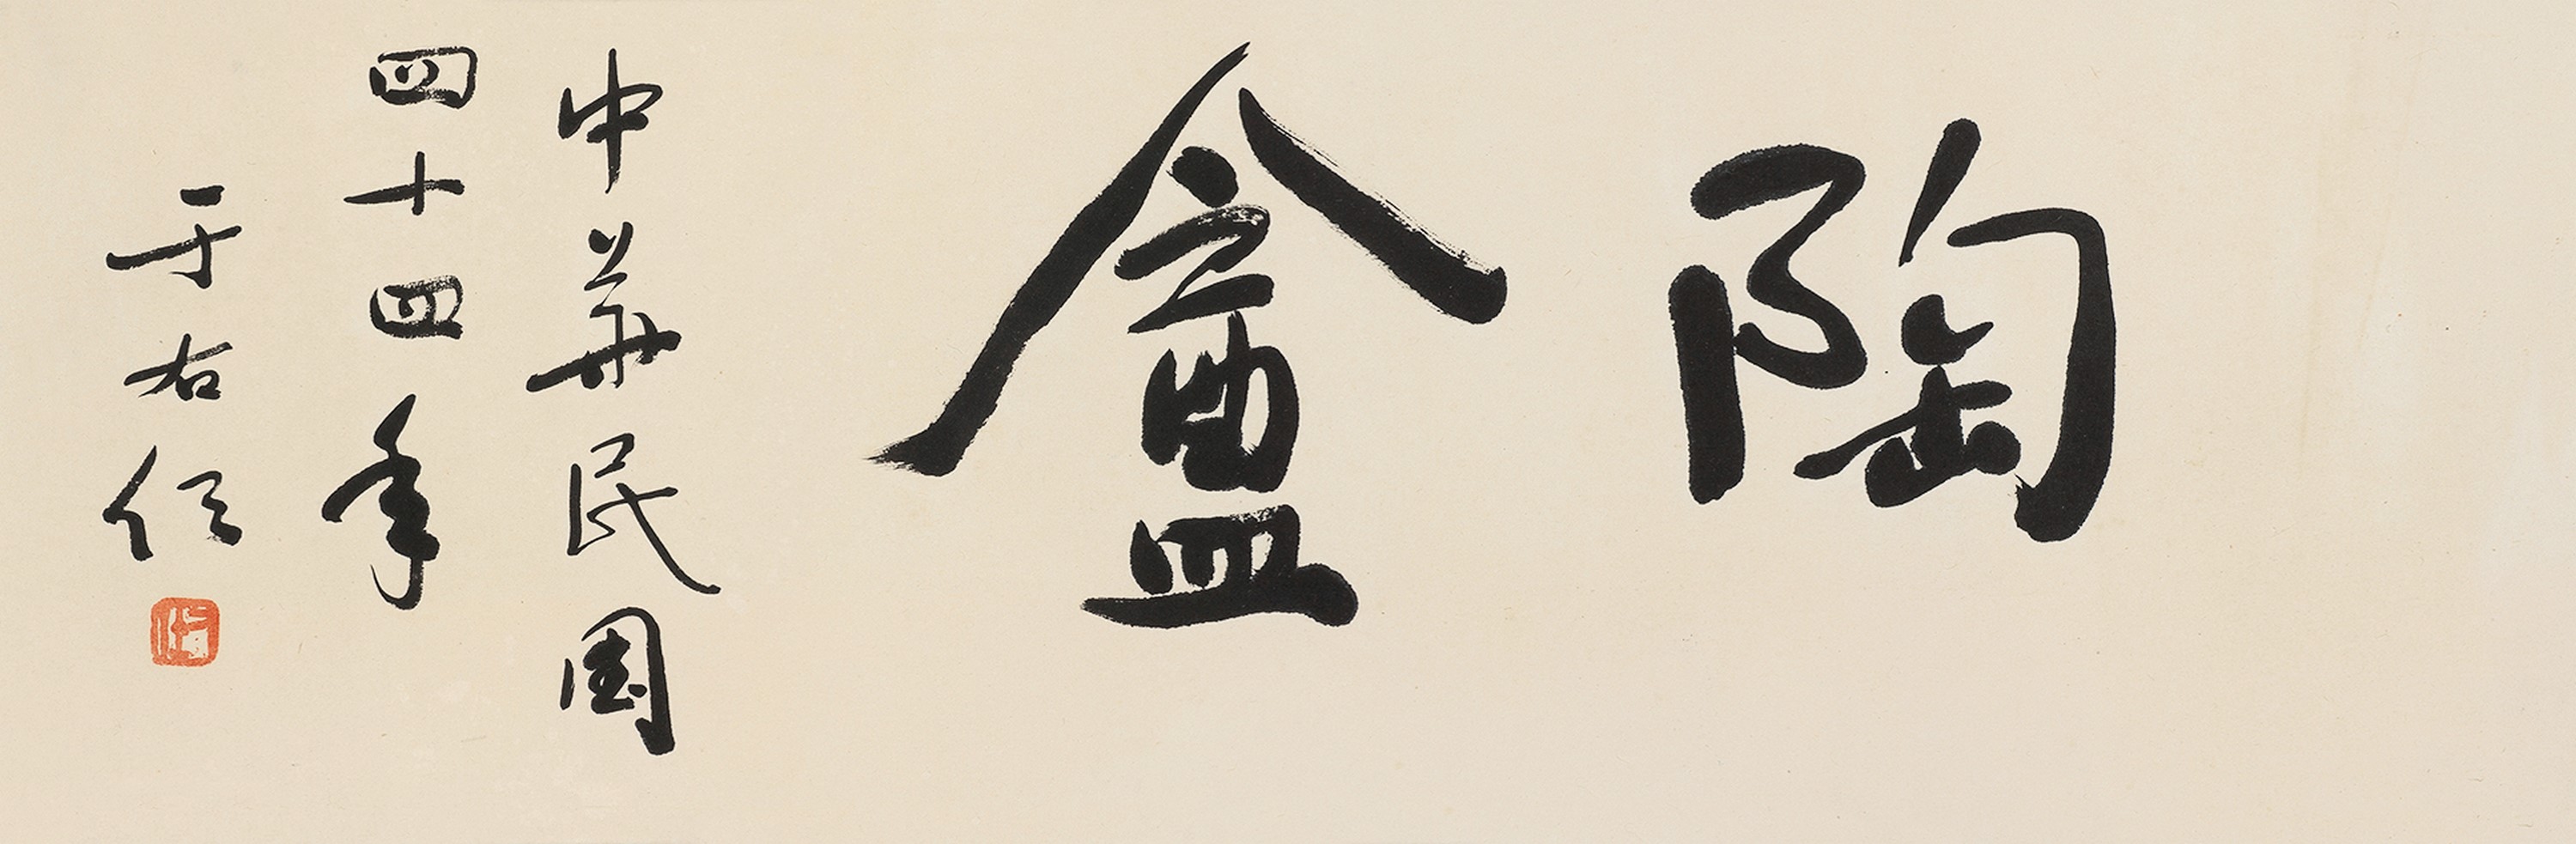 陶盦
中華民国
四十四年
于右任